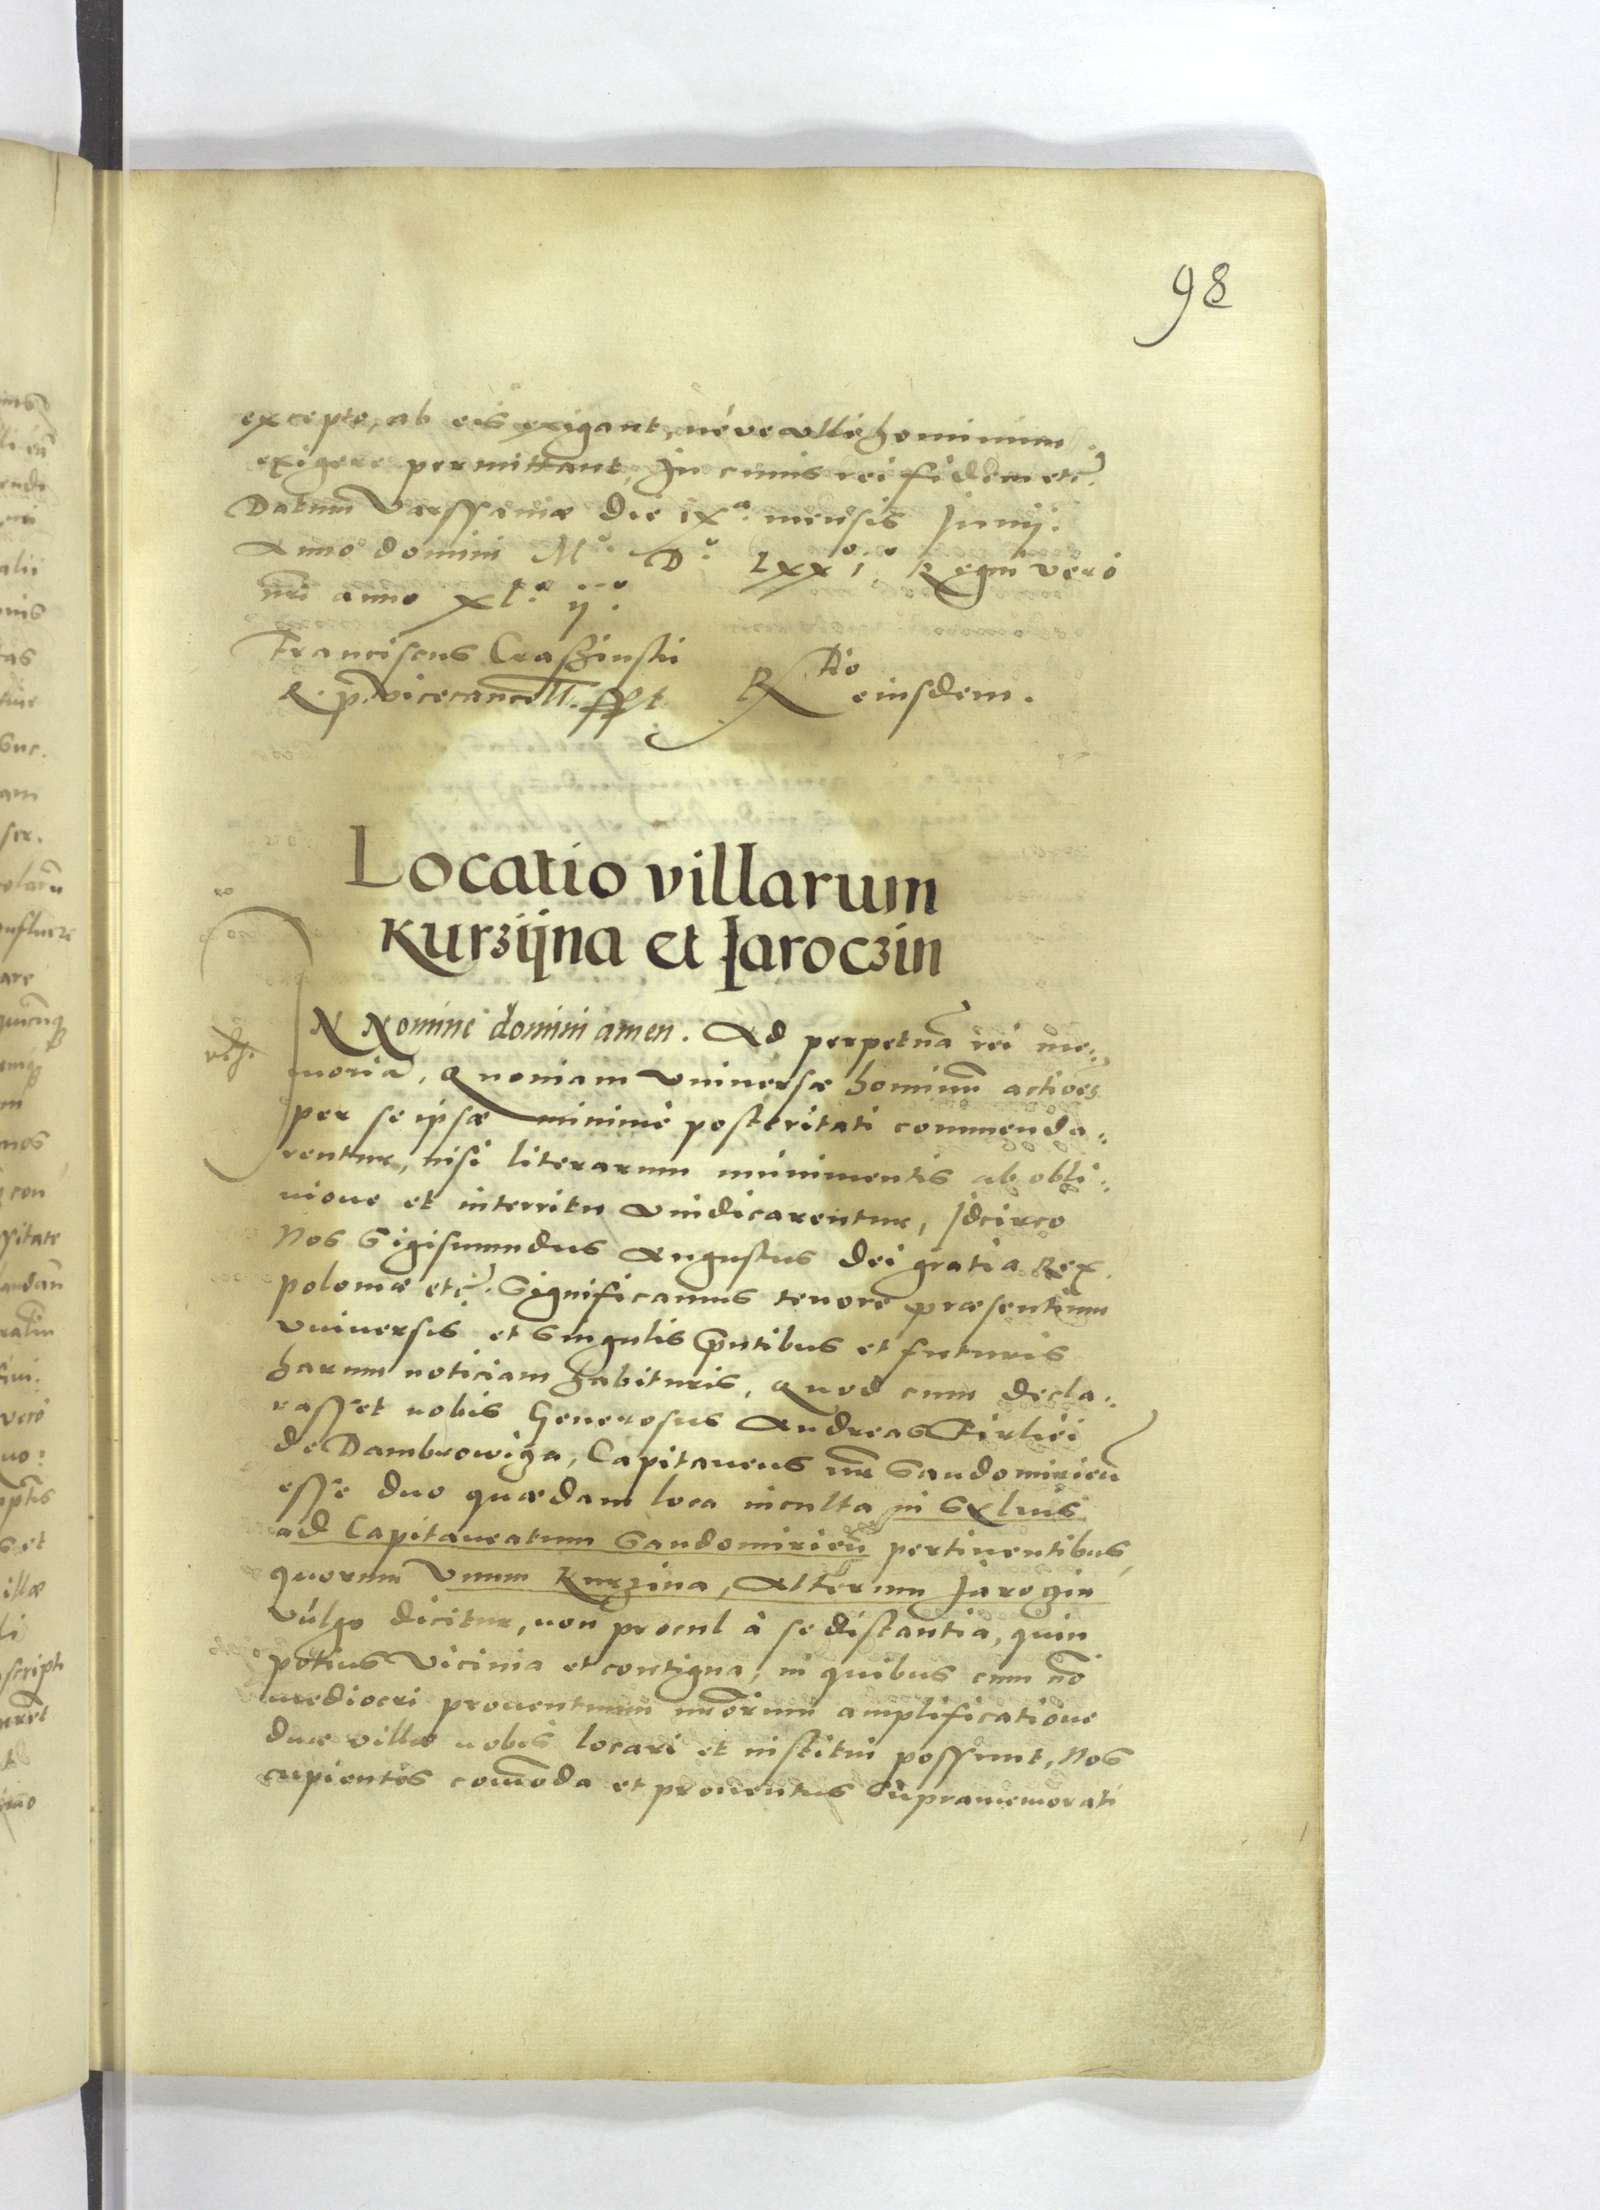 98
excepto, ab eis exigant, néve ullo hominum
exigere permittant, In cuius rei fidem etc.
Datum Varssaviæ die ixª. mensis Junij.
Anno domini Mº. Dº. Lxxº iº. Regni vero
nri anno xlº. ijº.
Franciscus Craszinskii
R. p. vicecancell. sspt. Rtio eiusdem.
Locatio villarum
Kurzijna et Jaroczin
IN Nomine domini amen. Ad perpetuā rei me:
moriā, Quoniam Universæ hominū actioēs
per se ipsæ minime posteritati commenda:
rentur, nisi literarum munimentis ab obli:
uione et interritu vindicarentur, Idcirco
Nos Sigismundus Augustus dei gratia Rex
poloniæ etc. Significamus tenore præsentium
universis et singulis pntibus et futuris
harum noticiam habituris, Quod cum decla:
rasset nobis Generosus Andreas Firliei
de Dambrowiza, Capitaneus nr Sandomirień
esse duo quædam loca inculta in sylvis
ad Capitaneatum Sandomirień pertinentibus,
quorum Unum Kurzina, Alterum Jarozin
vulgo dicitur, non procul à se distantia, quin
potius vicinia et contigua, in quibus cum nō
mediocri prouentuum nrorum amplificatione
duæ villæ nobis locari et institui possunt, Nos
cupientes comoda et prouentus Supramemorati